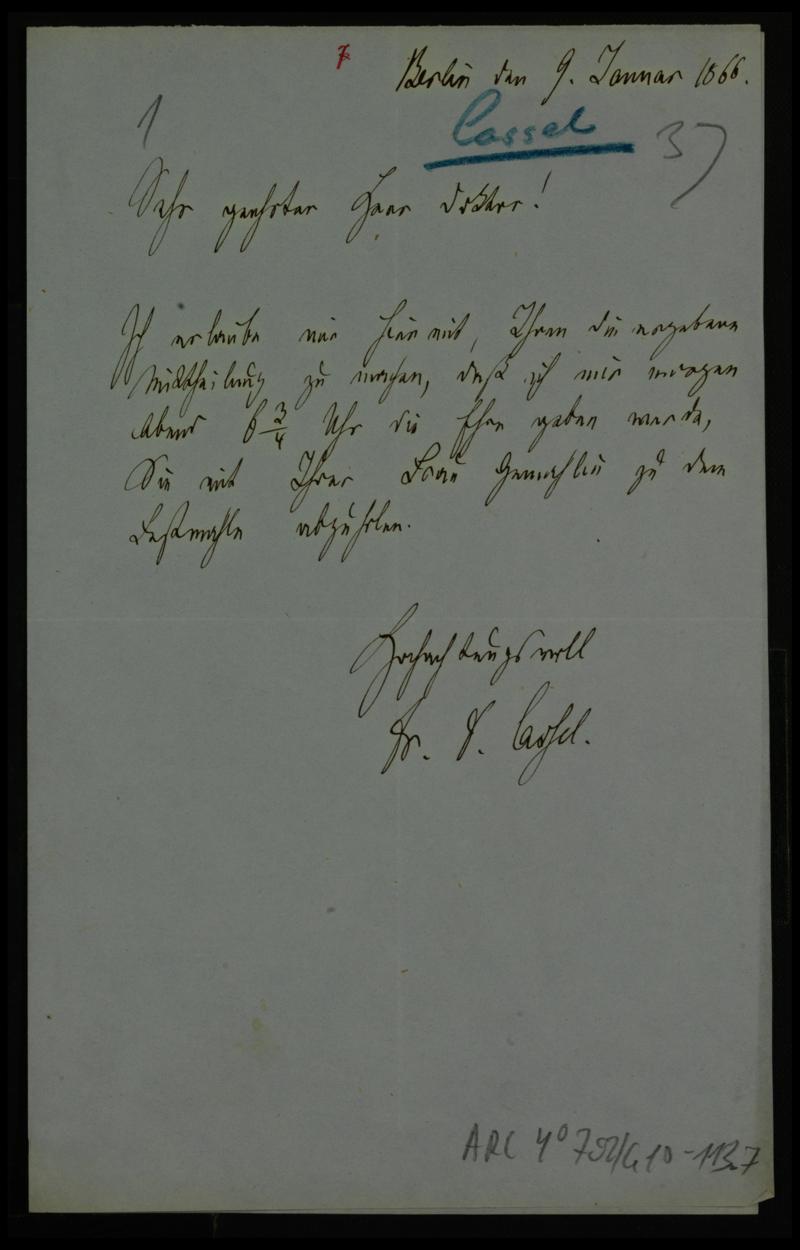 7
Berlin den 9. Januar 1866.
1
Cassel
37
Sehr geehrter Herr Doktor!
Ich erlaube mir hiermit, Ihnen die ergebene
Mittheilung zu machen, daß ich mir morgen
Abend 6 3/4 Uhr die Ehre geben werde,
Sie mit Ihrer Frau Gemahlin zu dem
Festmahle abzuholen.
Hochachtungsvoll
Dr. D. Cassel.
ARC 4° 792/G10-113.7